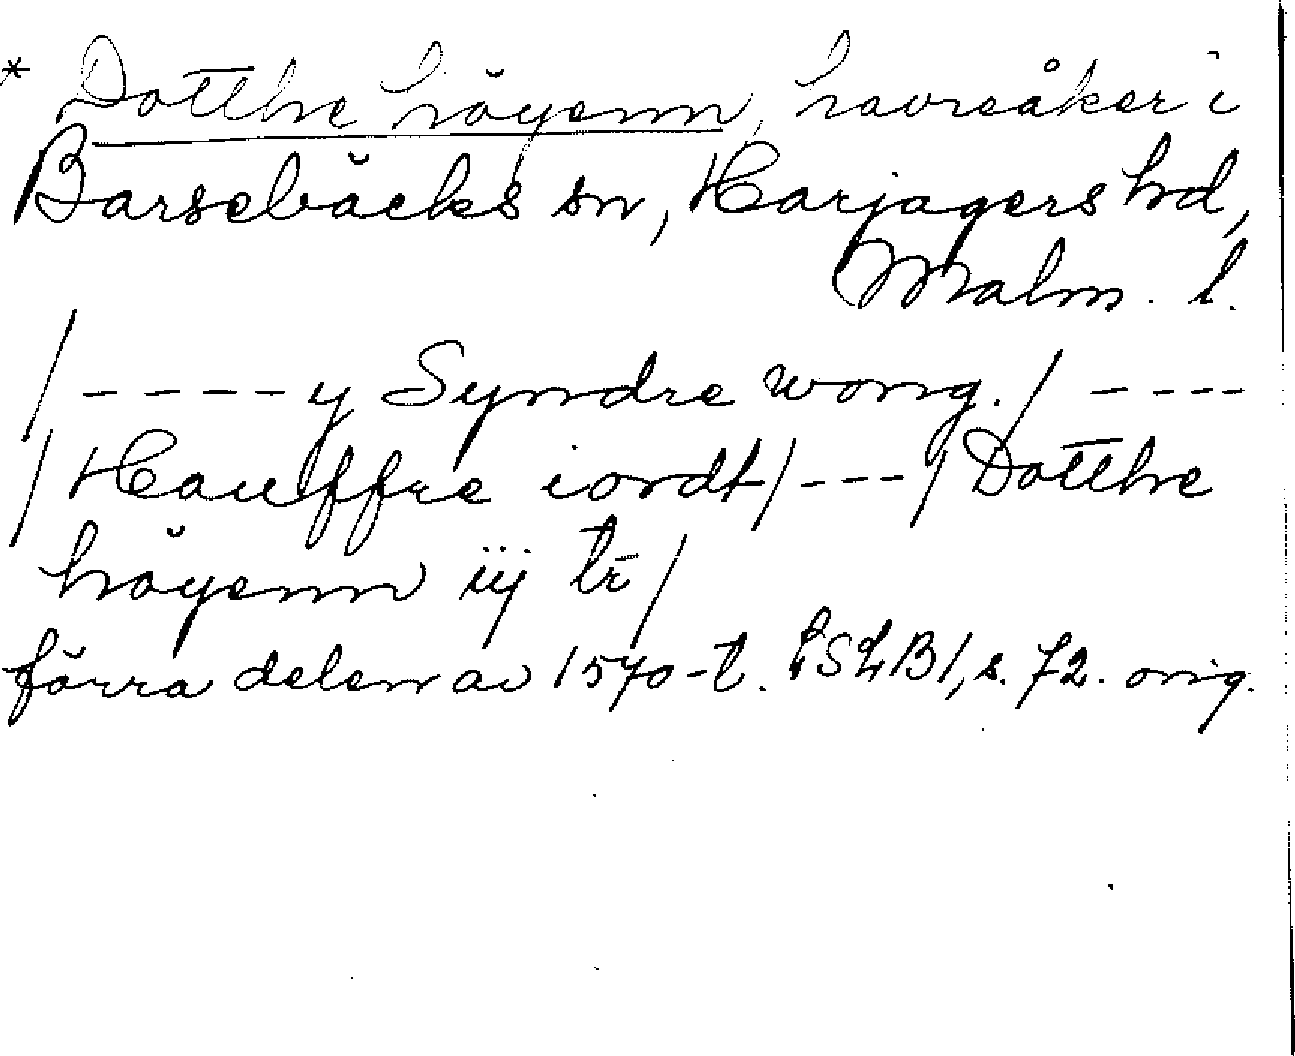 * Dotthe höyenn, havreåker i
Barsebäcks sn, Harjagers hd,
Malm. l.
/ - - - - - y Syndre wong. / - - - -
/ Hauffre iordt / - - - / Dotthe
höyenn iij tr̄ /
förra delen av 1570-t. LSLB1, s. 72. orig.